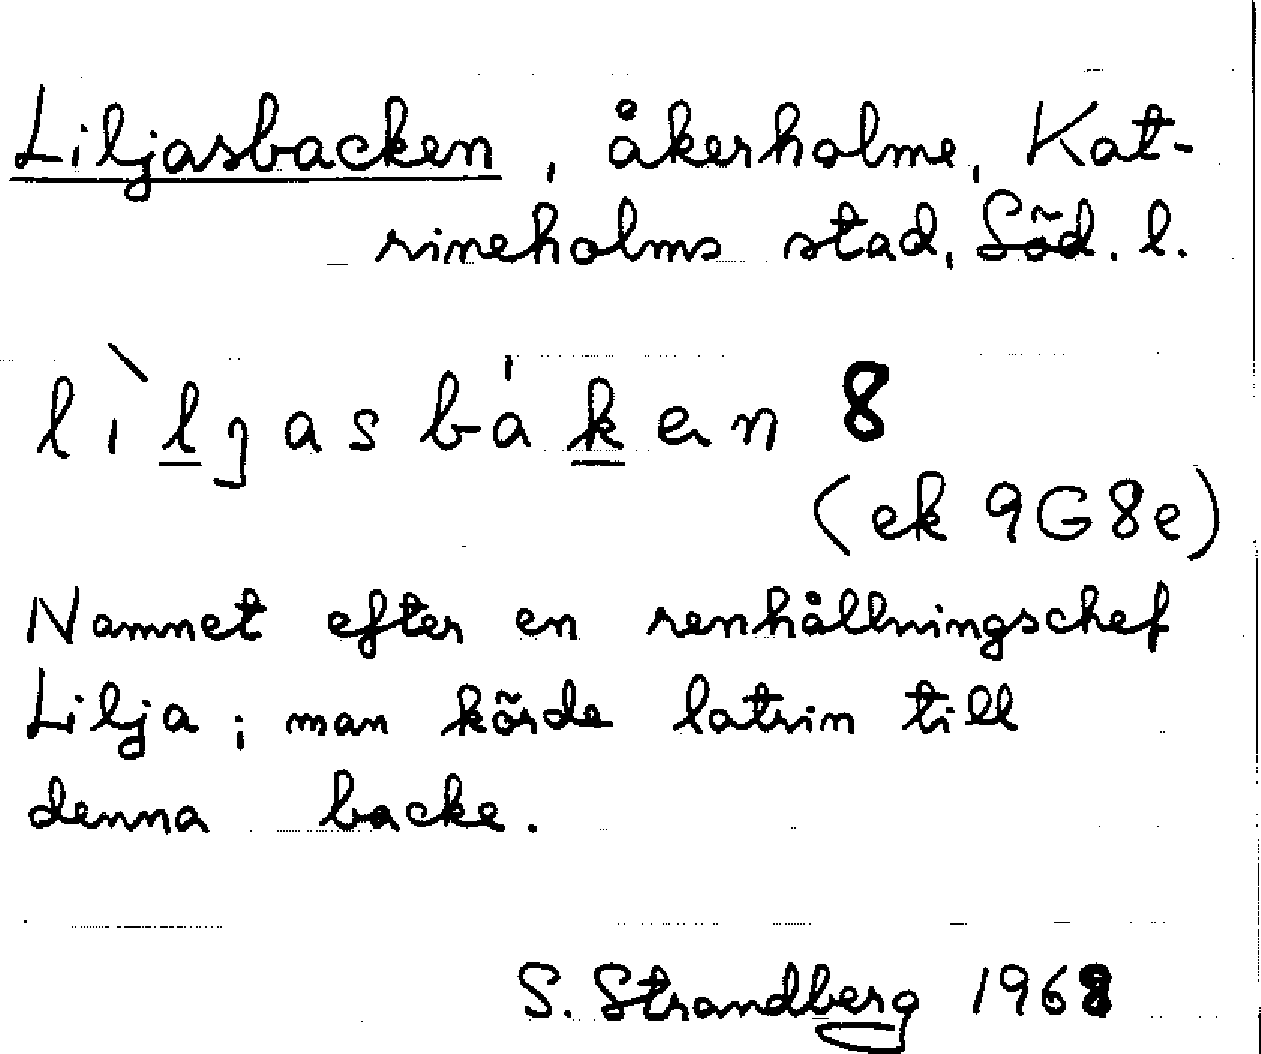 Liljasbacken, åkerholme, Kat-
rineholms stad, Söd. l.
lìl̲jasbák̲en 8
(ek 9G8e)
Namnet efter en renhållningschef
Lilja; man körde latrin till
denna backe.
S. Strandberg 1968